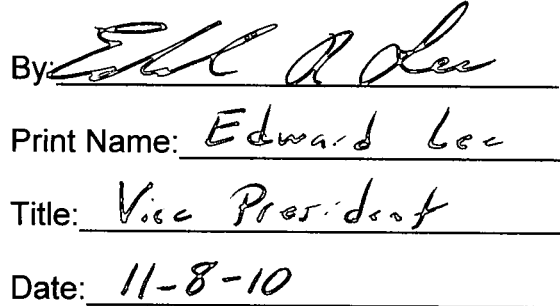 By: Edward R Lee
Print Name: Edward Lee
Title: Vice President
Date: 11-8-10